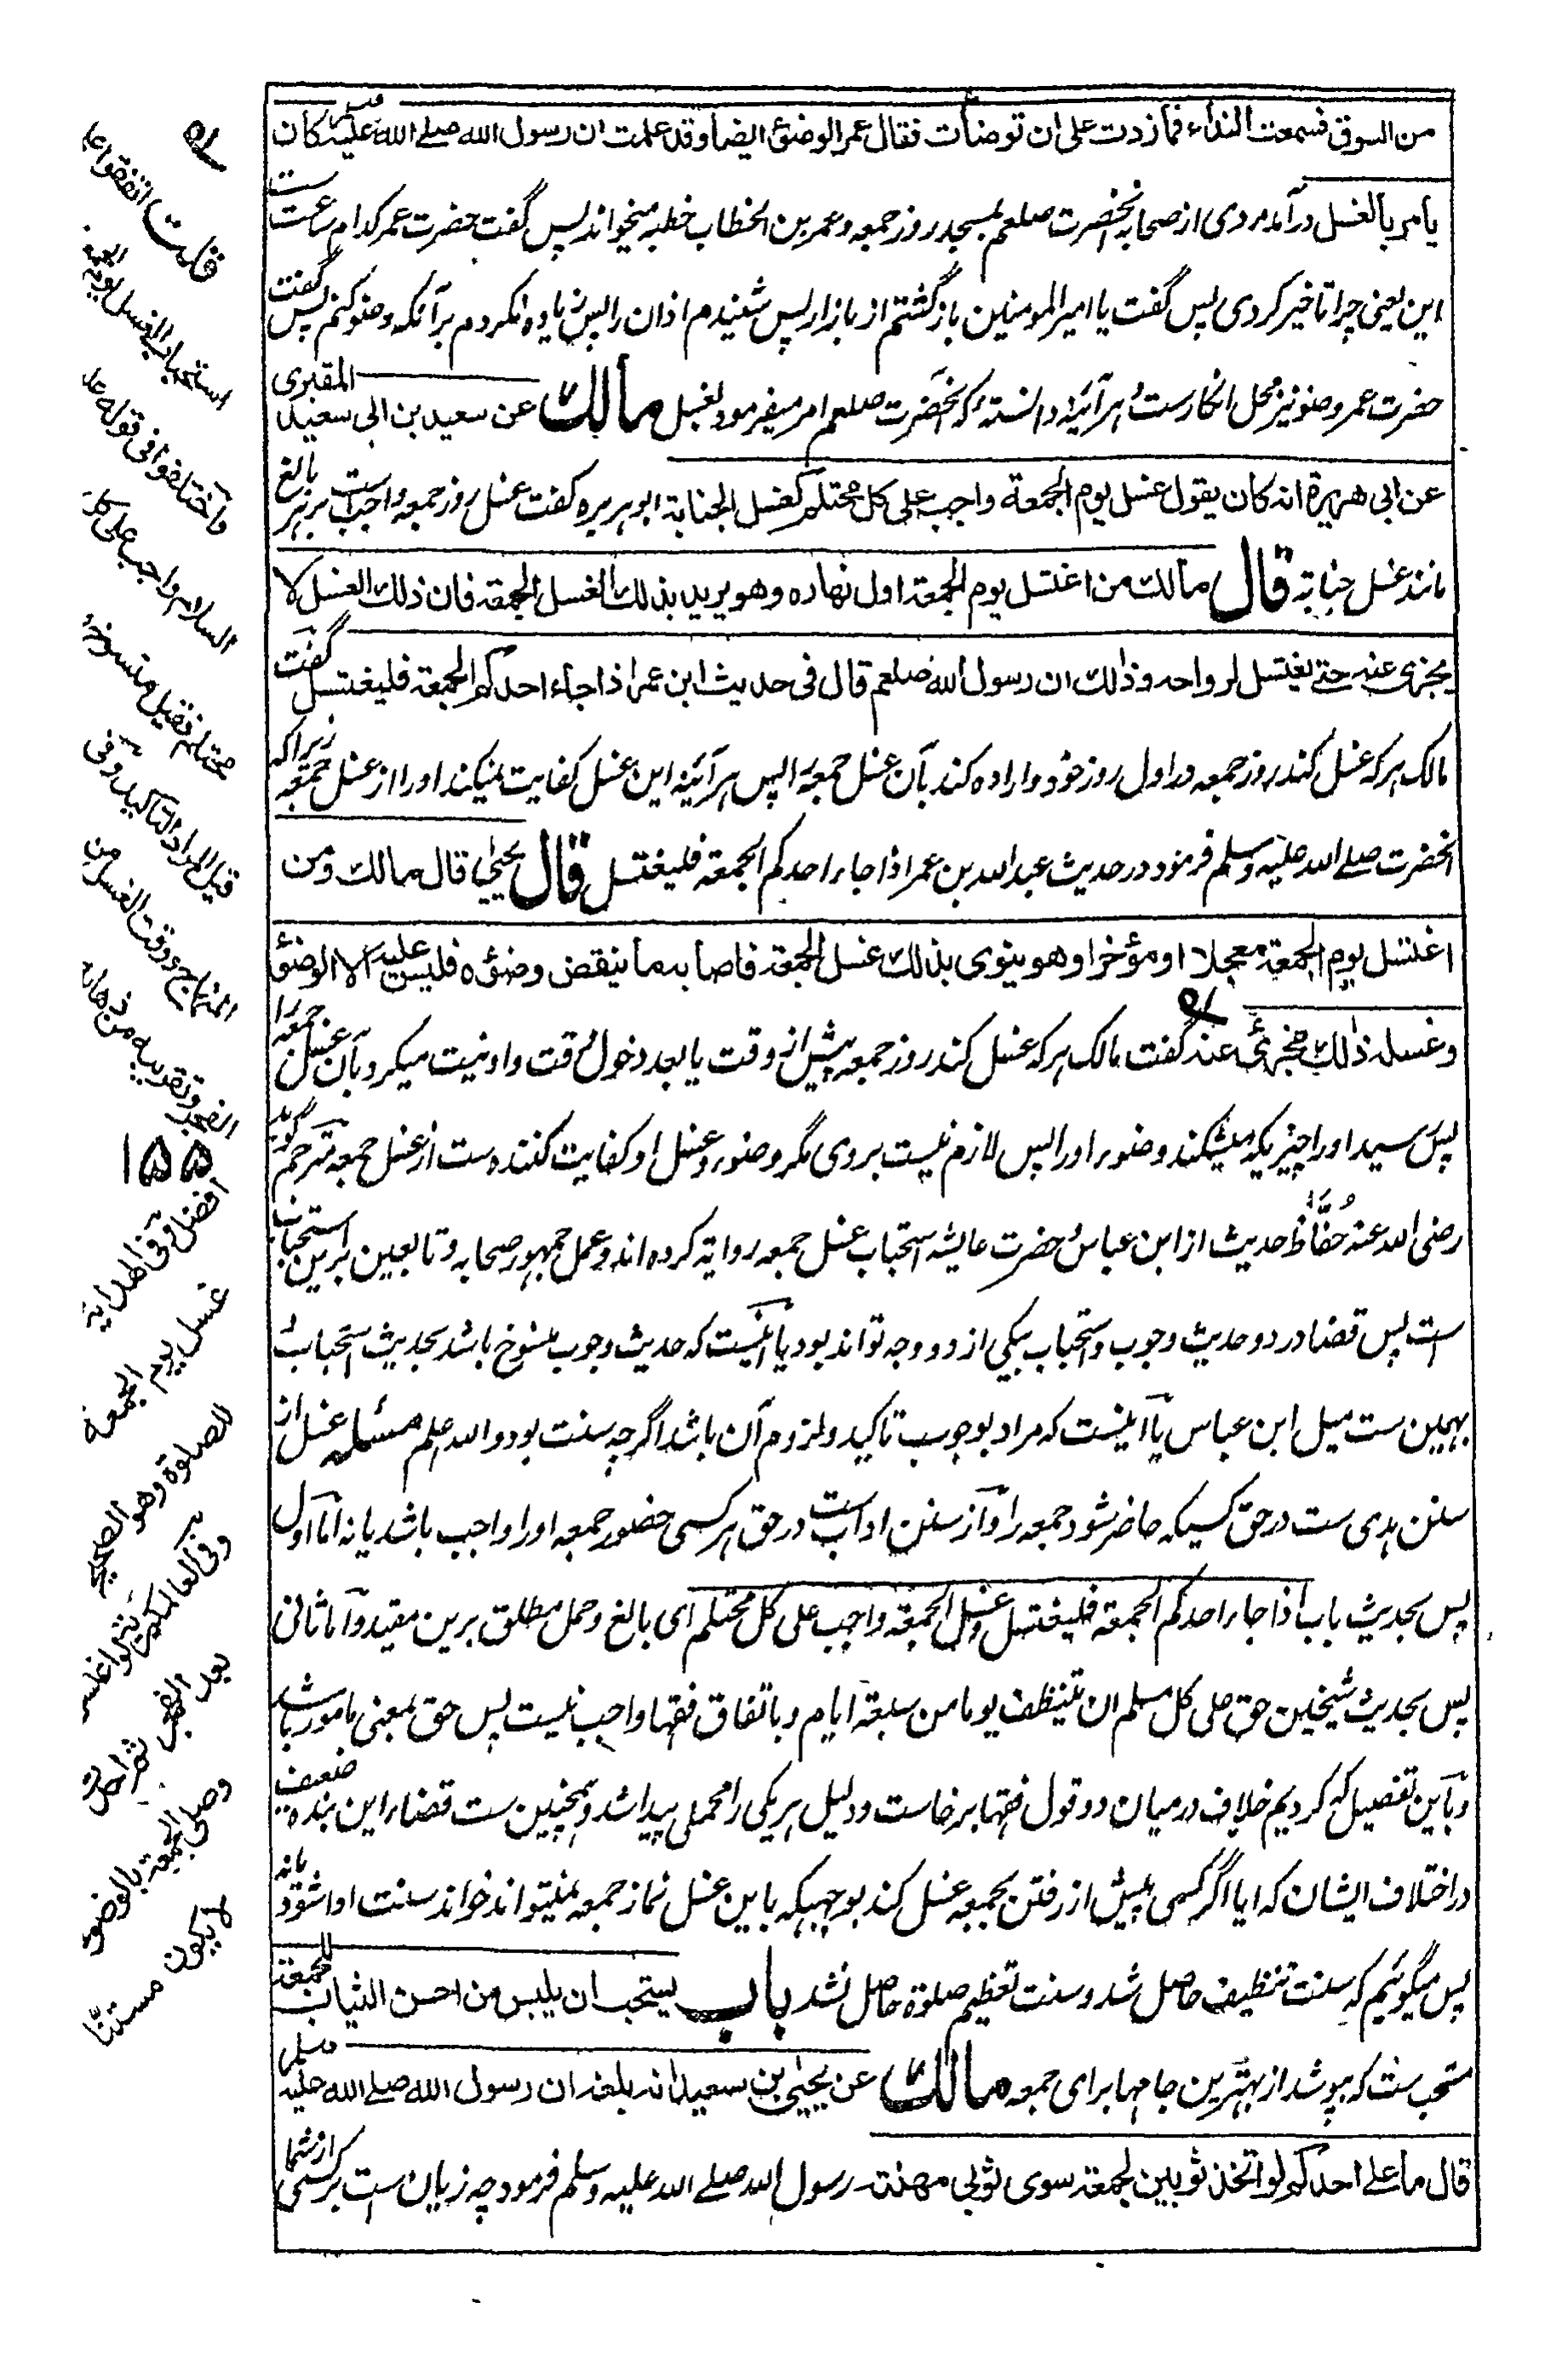 من السوق فسمعت النداء فما زدت على ان توضأت فقال عمر الوضوء ايضا وقد علمت ان رسول الله صلے الله عليه وسلم كان
يأمر بالغسل درآمد مردی از صحابه آنحضرت صلعم بمسجد روز جمعه و عمر بن الخطاب خطبه میخواند پس گفت حضرت عمر کدام ساعت ست
این یعنی چرا تاخیر کردی پس گفت یا امیر المومنین بازگشتم از بازار پس شنیدم اذان را پس زیاده نکردم بر آنکه وضو کنم پس گفت
حضرت عمر وضو نیز محل انکارست هر آئینه دانسته که آنحضرت صلعم امر میفرمود بغسل مالك عن سعيد بن ابى سعيد المقبرى
عن ابى هريرة انه كان يقول غسل يوم الجمعة واجب على كل محتلم كغسل الجنابة ابوهریره گفت غسل روز جمعه واجب است بر هر بالغ
مانند غسل جنابة قال مالك من اغتسل يوم الجمعة اول نهاره وهو يريد بذلك الغسل الجمعة فان ذلك الغسل لا
يجزى عنه حتے يغتسل لرواحه وذلك ان رسول الله صلعم قال فى حديث ابن عمر اذا جاء احدكم الجمعة فليغتسل گفت
مالک هر که غسل کند روز جمعه در اول روز خود و اراده کند بآن غسل جمعه را پس هر آئینه این غسل کفایت نمیکند او را از غسل جمعه زیرا که
آنحضرت صلے الله علیه وسلم فرمود در حدیث عبد الله بن عمر اذا جاء احدكم الجمعة فليغتسل قال يحيى قال مالك ومن
اغتسل يوم الجمعة معجلا او مؤخرا وهو ينوى بذلك غسل الجمعة فاصابه ما ينقض وضوءه فليس عليه الا الوضوء
وغسله ذلك مجزئ عنه گفت مالک هر که غسل کند روز جمعه پیش از وقت یا بعد دخول وقت و او نیت میکرد بآن غسل جمعه را
پس رسید او را چیزیکه میشکند وضوء او را پس لازم نیست بر وی مگر وضو و غسل او کفایت کننده ست از غسل جمعه مترجم گوید
رضی الله عنه حُفّاظ حدیث از ابن عباس و حضرت عایشه استحباب غسل جمعه روایة کرده اند و عمل جمهور صحابه و تابعین برین استحباب
ست پس قضا در دو حدیث وجوب و استحباب بیکی از دو وجه تواند بود یا اینست که حدیث وجوب منسوخ باشد بحدیث استحباب و
بهمین ست میل ابن عباس یا اینست که مراد بوجوب تاکید و لزوم آن باشد اگرچه سنت بود و الله اعلم مسئله غسل از
سنن هدی ست در حق کسیکه حاضر شود جمعه را و از سنن اداب ست در حق هر کسی حضور جمعه او را واجب باشد یا نه اما اول
پس بحدیث باب اذا جاء احدكم الجمعة فليغتسل وغسل الجمعة واجب على كل محتلم اى بالغ و حمل مطلق برین مقید و اما ثانی
پس بحدیث شیخین حق على كل مسلم ان يتنظف يوما من سبعة ايام و باتفاق فقها واجب نیست پس حق بمعنی مامور باشد
و باین تفصیل که کردیم خلاف درمیان دو قول فقها برخاست و دلیل هر یکی را محملی پیدا شد و همچنین ست قضاء این بنده ضعیف
در اختلاف ایشان که ایا اگر کسی پیش از رفتن بجمعه غسل کند بوجهیکه باین غسل نماز جمعه نمیتواند خواند سنت ادا شود یا نه
پس میگوئیم که سنت تنظیف حاصل شد و سنت تعظیم صلوة حاصل نشد باب يستحب ان يلبس من احسن الثياب للجمعة
مستحب ست که بپوشد از بهترین جامها برای جمعه مالك عن يحيى بن سعيد انه بلغه ان رسول الله صلے الله عليه وسلم
قال ما على احدكم لو اتخذ ثوبين لجمعته سوى ثوبى مهنته رسول الله صلے الله علیه وسلم فرمود چه زیان ست بر کسی از شما
قلت اتفقوا على
استحباب الغسل يوم الجمعة
واختلفوا فى قوله عليه
السلام واجب على كل
محتلم فقيل منسوخ
قيل المراد التاكيد وفى
المنهاج ووقت الغسل من
الفجر وتقريبه من ذهابه
۱۵۵
افضل وفى الهداية
غسل يوم الجمعة
للصلوة وهو الصحيح
وفى العالمكيرية لو اغتسل
بعد الفجر ثم احدث
وصلى الجمعة بالوضوء
لا يكون مستنّا